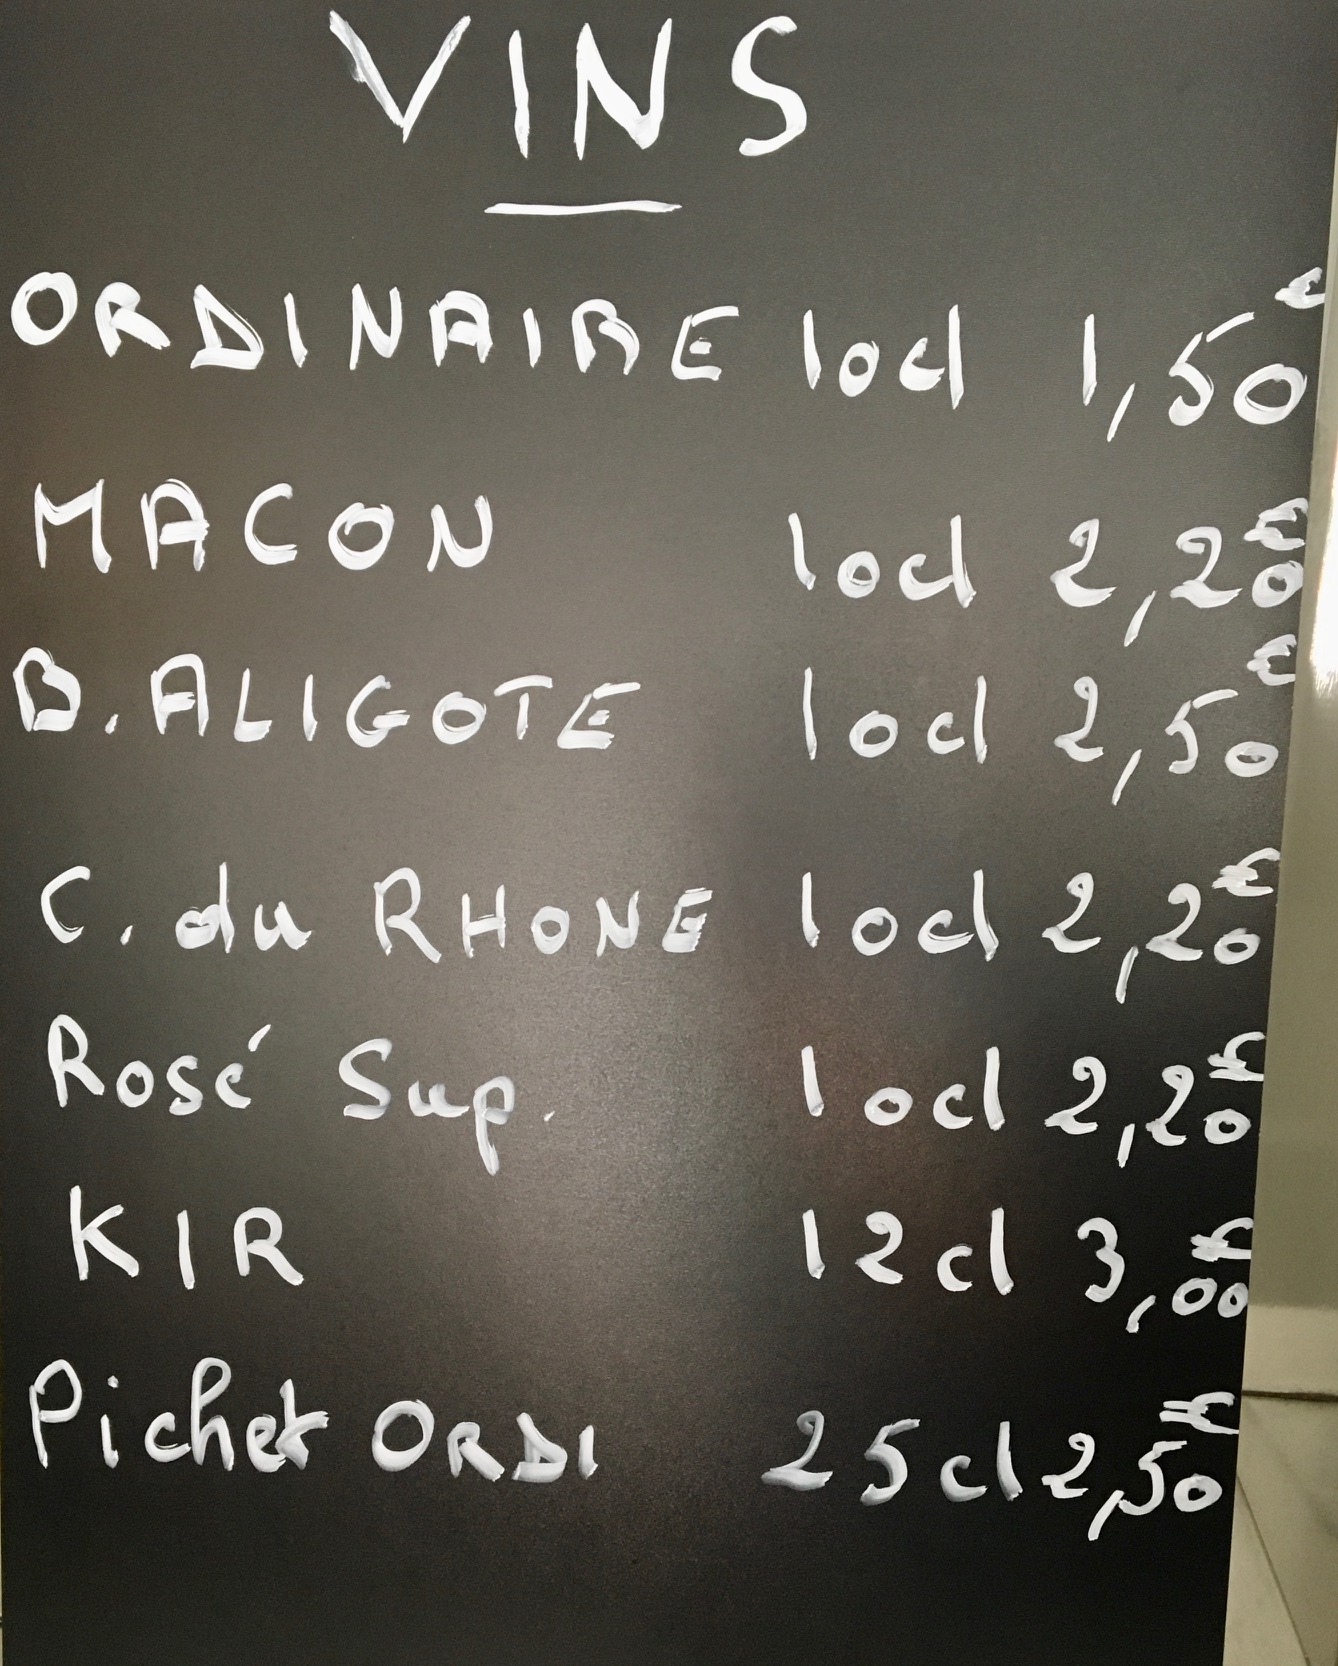 VINS
ORDINAIRE 10cl 1,50€
MACON 10cl 2,20€
B.ALIGOTE 10cl 2,50€
C. du RHONE 10cl 2,20€
Rosé Sup. 10cl 2,20€
KIR 12cl 3,00€
Pichet ORDI 25cl 2,50€